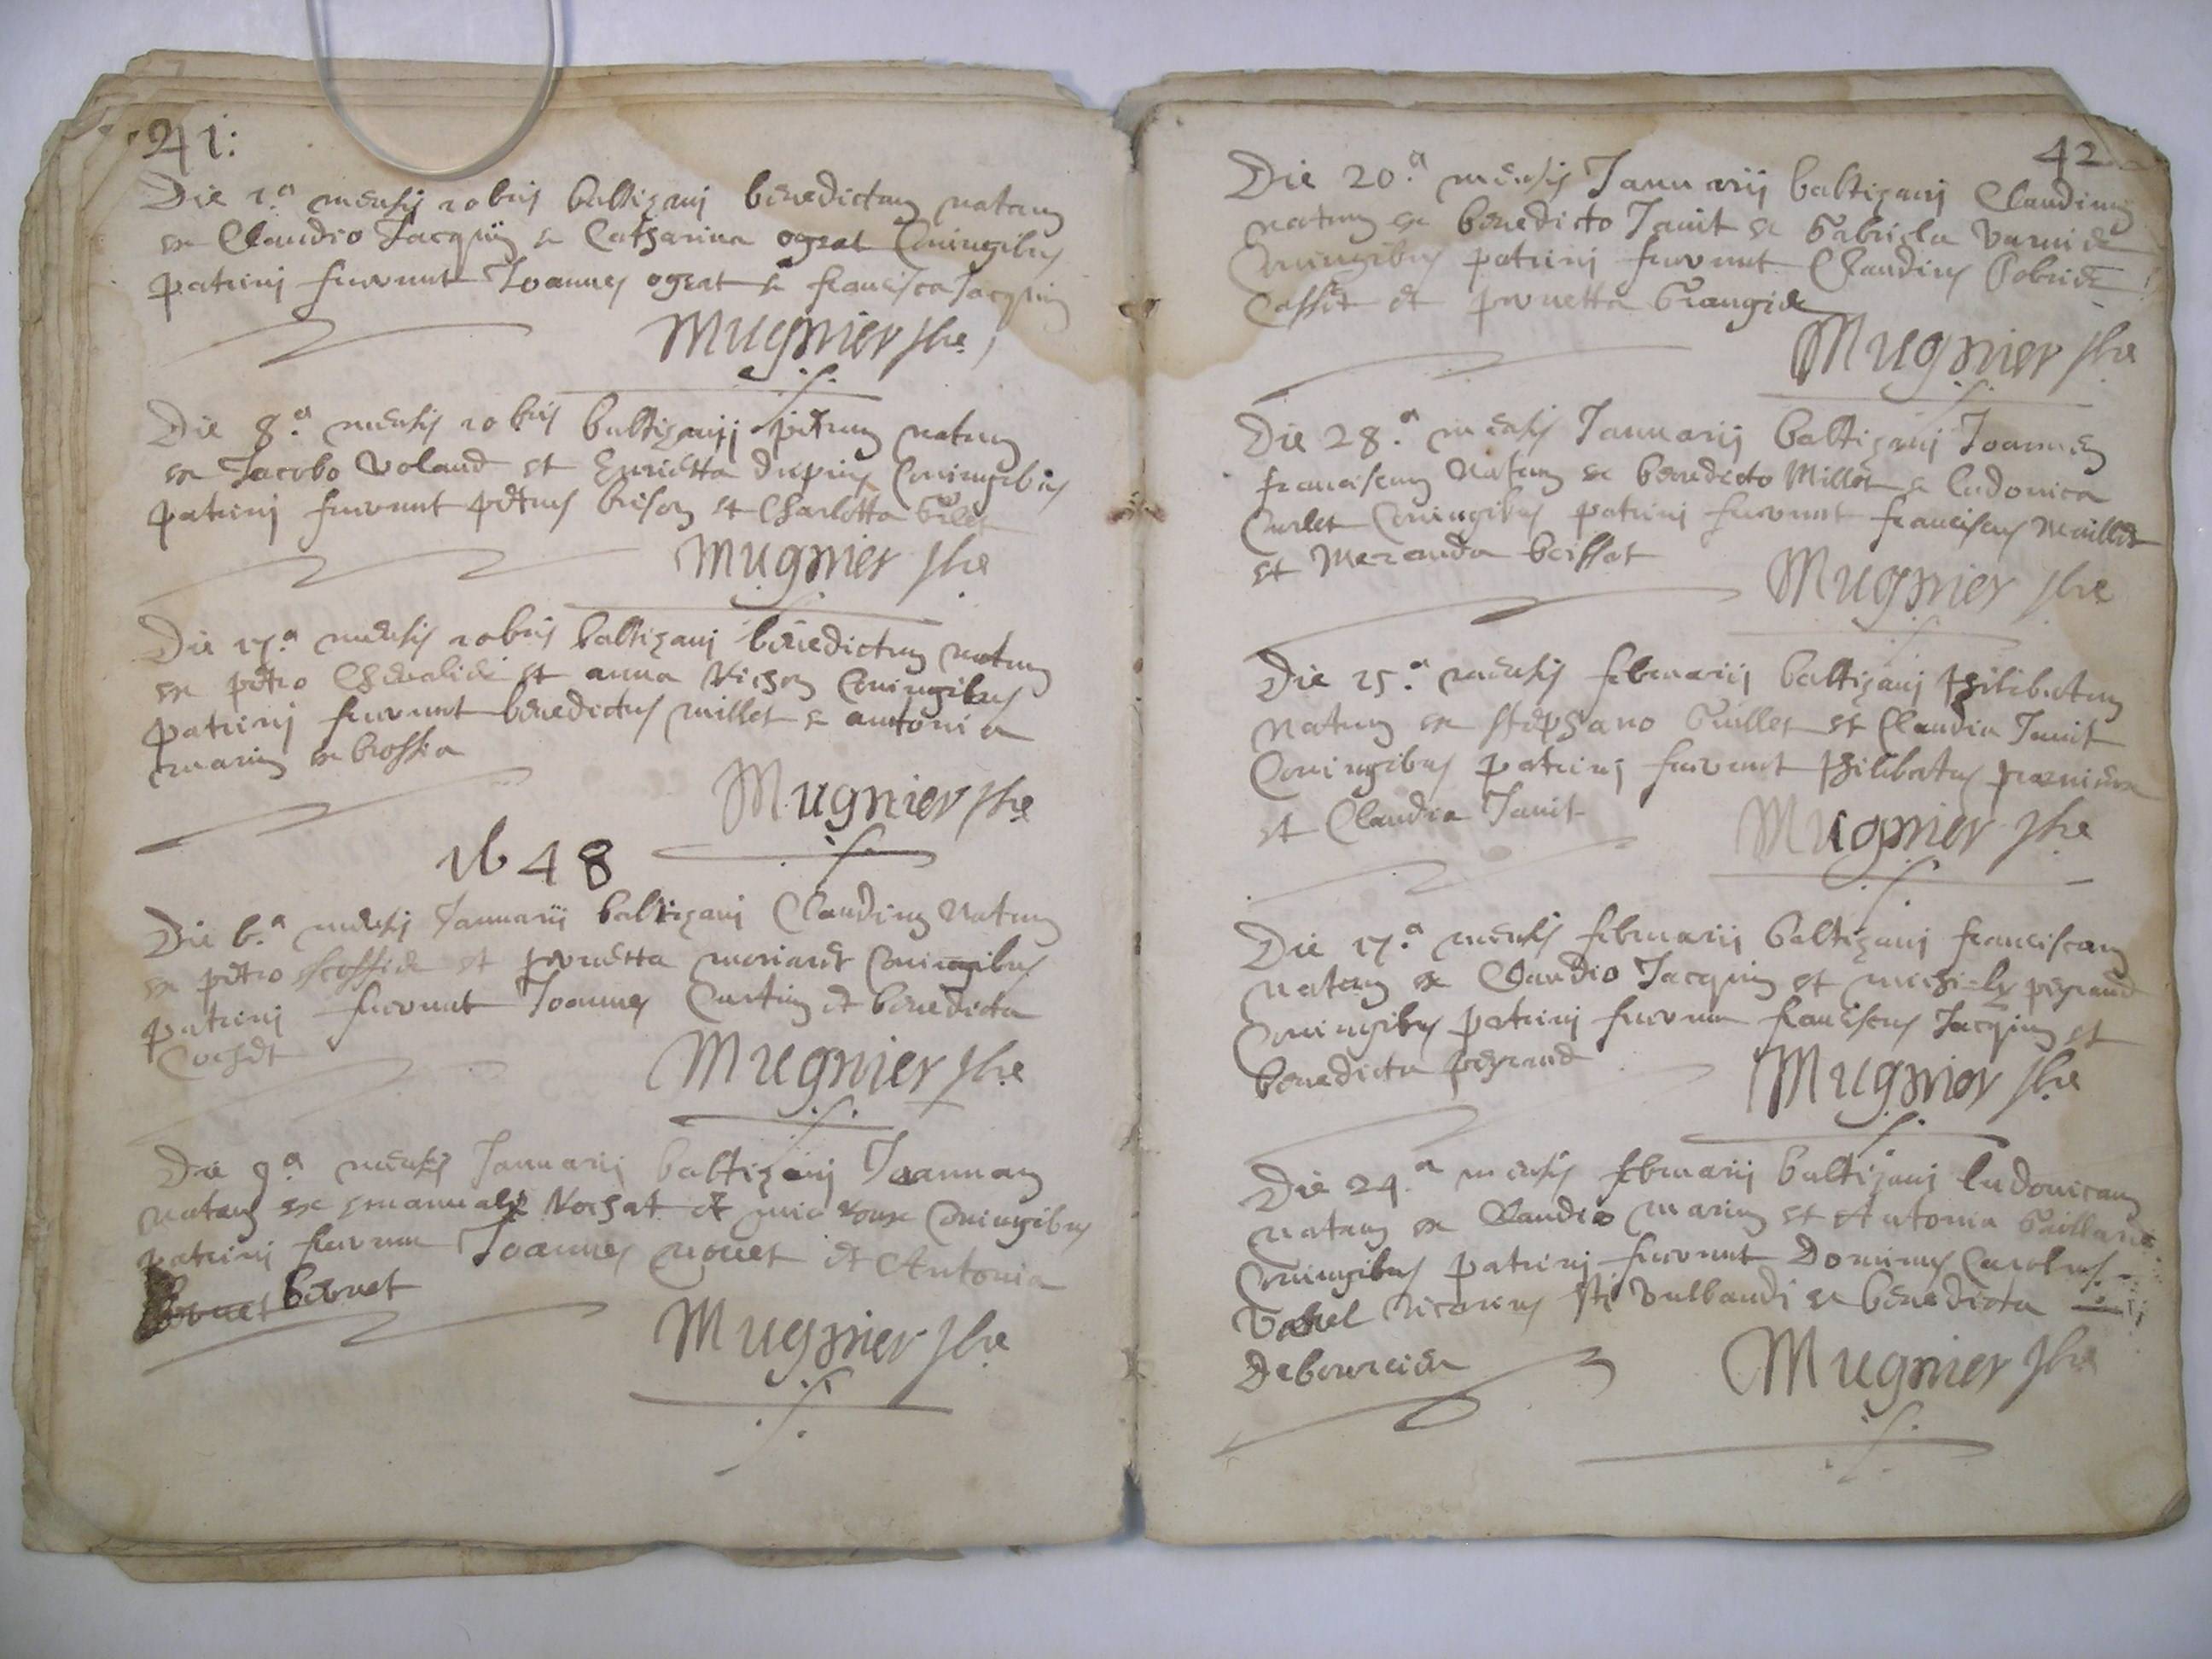 41:
Die 1.a mensis 10bris baltizavi benedictam natam
ex Claudio Jacquin & Catharina ogeat Coniugibus
patrini fuerunt Joannes ogeat & francisca Jacquin
Mugnier
Die 8.a mensis 10bris baltizavi petrum natum
ex Jacobo Voland et Enrietta dupuis Coniugibus
patrini fuerunt petrus brison et Charlotta
Mugnier
Die 17.a mensis 10bris baltizavi benedictum natum
ex petro Chevalier et anna Coniugibus
patrini fuerunt benedictus millet & antonia
marin ex brossia
Mugnier
1648
Die 6.a mensis Januarii baltizavi Claudium Natum
ex petro et pernetta Coniugibus
patrini fuerunt Joannes Curtin et benedicta
Cochet
Mugnier
Die 9.a mensis Januarij baltizavi Joannam
natam ex emanuale et Coniugibus
patrini fuerunt Joannes et Antonia
bernet
Mugnier
42
Die 20.a mensis Januarij baltizavi Claudium
natum ex benedicto Janit & Gabriela
Coniugibus patrini fuerunt Claudius
et pernetta Grangier
Mugnier
Die 28.a mensis Januarij baltizavi Joannem
franciscum Natum ex benedicto Millet & ludovica
Curlet Coniugibus patrini fuerunt franciscus Maillet
et beissat
Mugnier
Die 15.a mensis februarij baltizavi philibertum
Natum ex stephano Guillet et Claudia Janit
Coniugibus patrini fuerunt philibertus
et Claudia Janit
Mugnier
Die 17.a mensis februarij baltizavi franciscam
natam ex Claudio Jacquin et peyraud
Coniugibus patrini fuerunt franciscus Jacquin et
benedicta peyraud
Mugnier
Die 24.a mensis februarij baltizavi ludovicam
natam ex Claudio marin et Antonia
Coniugibus patrini fuerunt Dominus Carolus
vicarius sti vulbaudi & benedicta
Mugnier